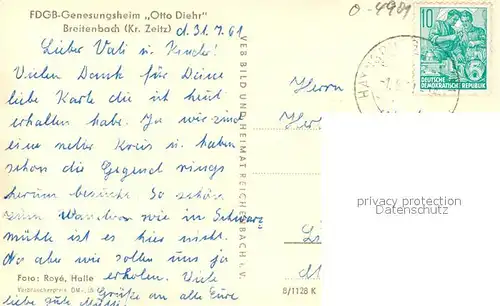 FDGB-Genesungsheim „Otto Diehr"
Breitenbach (Kr. Zeitz)
d. 31.7.61
Lieber Vati u. Kinder!
Vielen Dank für Deine
liebe Karte die ich heut
erhalten habe. Ja wir sind
eine netter Kreis u. haben
schon die Gegend rings
herum besucht. So schön
zum Wandern wie in Schwarz
mühle ist es hier nicht.
Na aber wir sollen uns ja
erholen. Viele
Grüße an alle Eure
liebe gute Mutti
Foto: Royé, Halle
Verbraucherpreis DM
VEB BILD UND HEIMAT REICHENBACH i. V.
8/1128 K
O-4901
10
DEUTSCHE
DEMOKRATISCHE REPUBLIK
Herrn
privacy protection
Datenschutz